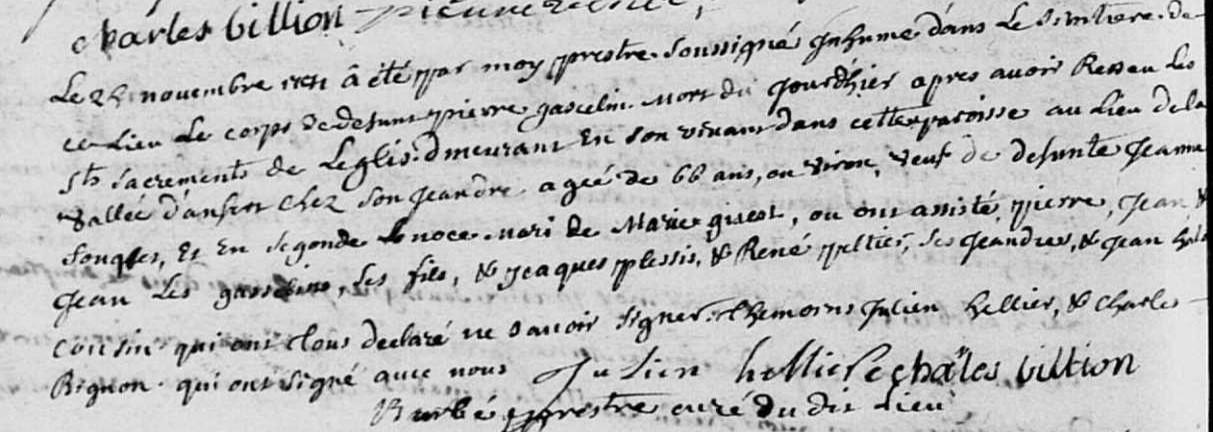 charles billion
Le novembre â été par moy prestre soussigné Inhumé dans Le Simtiere de
ce Lieu Le corps de defunt pierre gascelin mort du jourdhier apres avoir Resseu Les
Sts sacrements de Leglise dmeurant En son vivant dans cette paroisse au Lieu de la
vallée chez son jeandre agée de 66 ans, ou viron, veuf de defunte jeanne
Et En segonde noce mari de Marie, ou ont assisté, pierre, jean &
jean Les gasselins, ses fils, & jaques plessis, & René peltier, ses jeandres, & jean
cousin qui ont tous declaré ne savoir signer. Themoins julien hellier, & charles
Bignon qui ont signé avec nous Julien hellier charles billion
Burbé prestre curé du dit Lieu